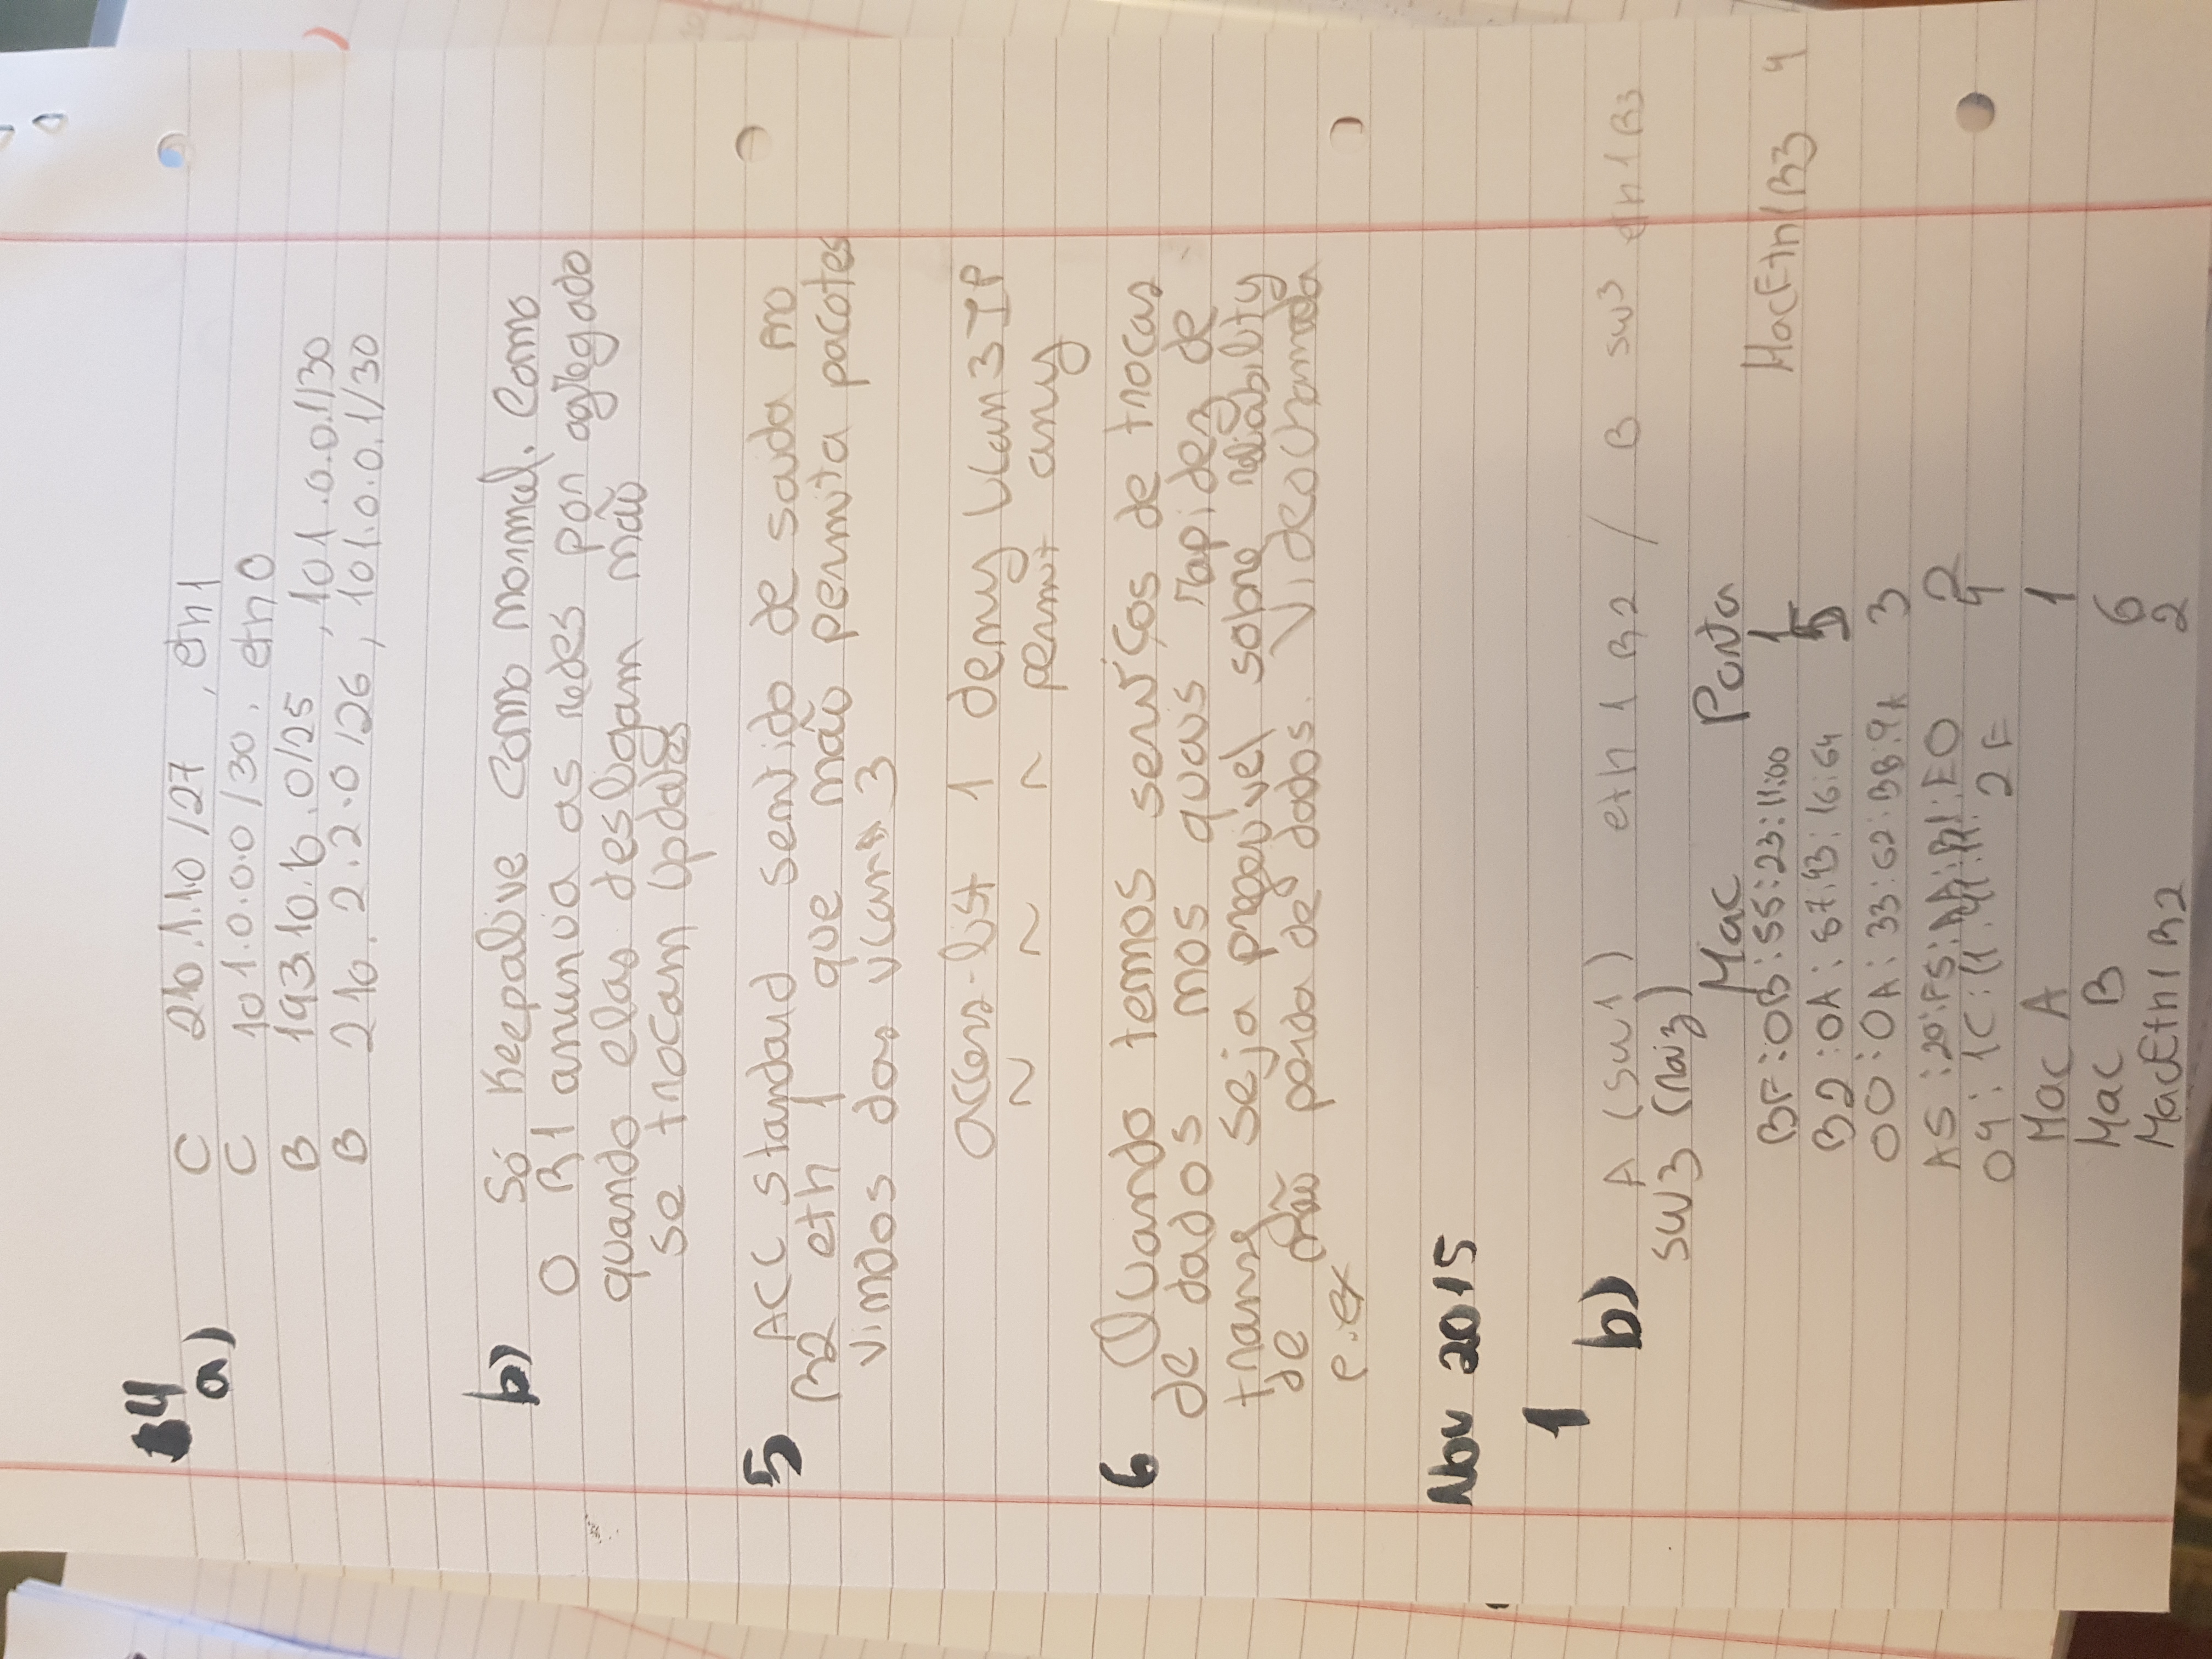 4
a) C 210.1.1.0 /27 , eth1
C 101.0.0.0 /30 , eth 0
B 193.10.6.0/25 , 101.0.0.1/30
B 210.2.2.0 /26 , 101.0.0.1/30
b) Só Keepalive como normal. Como
o R1 anuncia as redes por agregado
quando elas desligam não
se trocam Updates
5 ACC standard sentido de saída no
R2 eth 1 que não permita pacotes
vindos das vlans 3
access-list 1 deny Vlan 3 IP
~ ~ ~ permit any
6 Quando temos serviços de trocas
de dados nos quais rapidez de
transf seja preferível sobre reliability
de não perda de dados. Videochamada
p.ex
Nov 2015
1
b) A (sw1) eth 1 R2 / B sw3 eth 1 R3
SW3 (raiz)
Mac Porta
BF:0B:55:23:11:00 1 MacEth1R3 4
B2:0A:87:43:16:64 5
00:0A:33:62:BB:9A 3
A5:20:F5:AA:B1:E0 2
04:1C:11:41:11:2E 4
Mac A 1
Mac B 6
MacEth1 R2 2